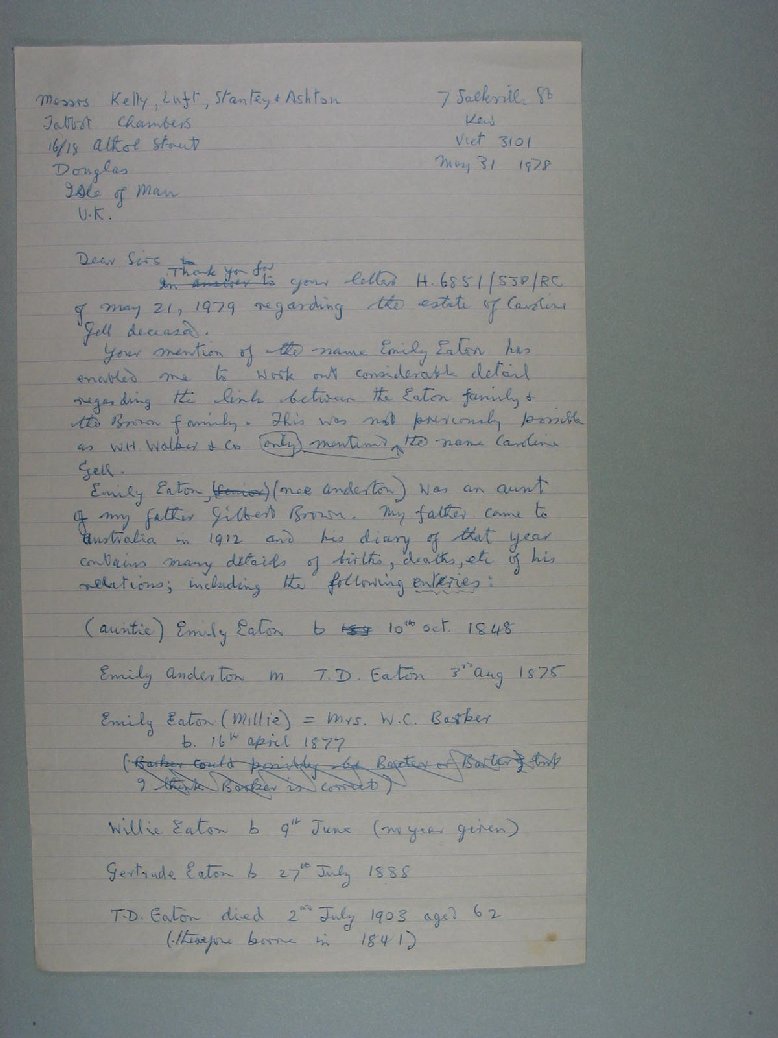 Messrs Kelly, Luft, Stanley & Ashton
7 Sackville St
Talbot Chambers
Kew
16/18 Athol Street
Vict 3101
Douglas
May 31 1978
Isle of Man
U.K.
Dear Sirs
Thank you for
In answer to your letter H.6851/SJP/RC
of May 21, 1979 regarding the estate of Caroline
Gell deceased.
Your mention of the name Emily Eaton has
enabled me to work out considerable detail
regarding the link between the Eaton family &
the Brown family. This was not previously possible
as W.H. Walker & Co only mentioned the name Caroline
Gell.
Emily Eaton, (Senior) (nee Anderton) was an aunt
of my father Gilbert Brown. My father came to
Australia in 1912 and his diary of that year
contains many details of births, deaths, etc of his
relations; including the following entries:
(auntie) Emily Eaton b 10th Oct. 1848
Emily Anderton m T.D. Eaton 3rd Aug 1875
Emily Eaton (Millie) = Mrs. W.C. Barker
b. 16th April 1877
(Barker could possibly be Baxter or Barter but
I think Barker is correct)
Willie Eaton b 9th June (no year given)
Gertrude Eaton b 27th July 1888
T.D. Eaton died 2nd July 1903 aged 62
(therefore borne in 1841)